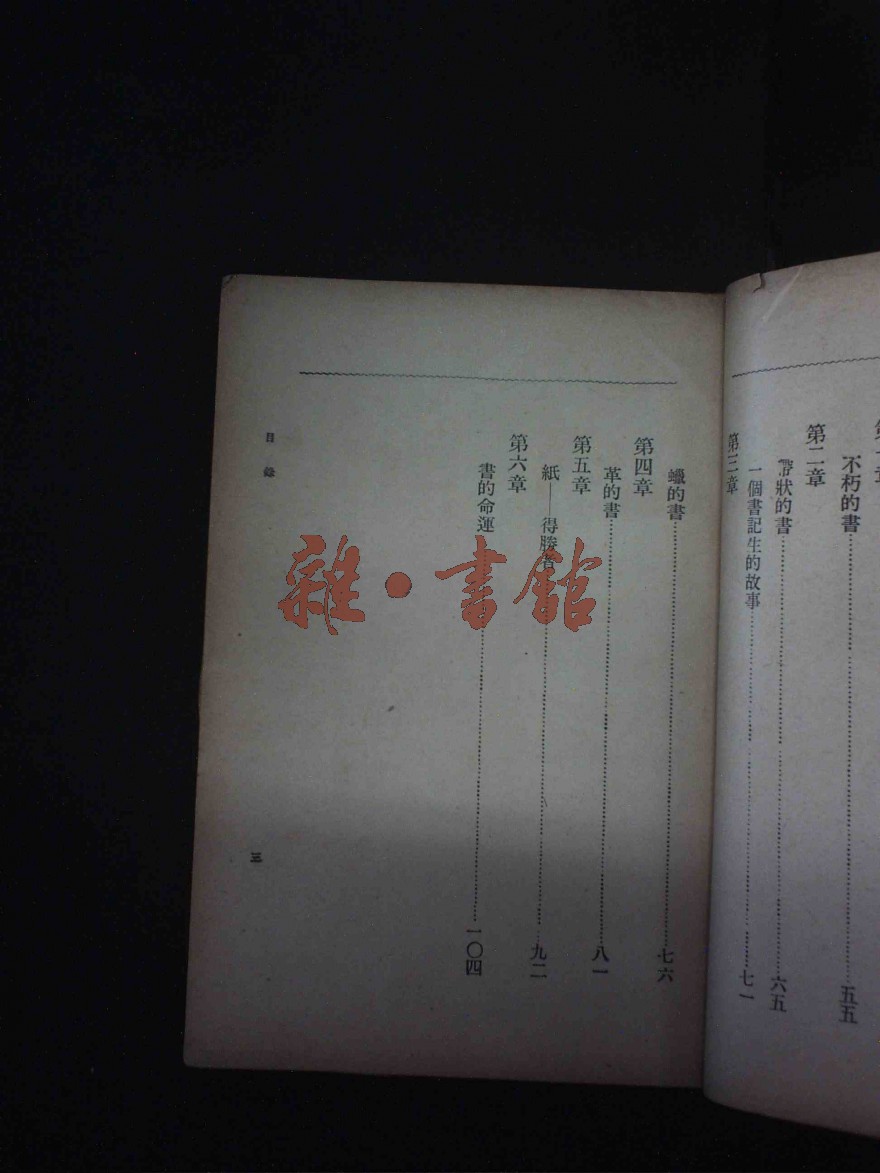 不朽的書……五五
第二章
帶狀的書……六五
一個書記生的故事……七一
第三章
蠟的書……七六
第四章
革的書……八一
第五章
紙——得勝者……九二
第六章
書的命運……一〇四
目錄
三
雜·書館